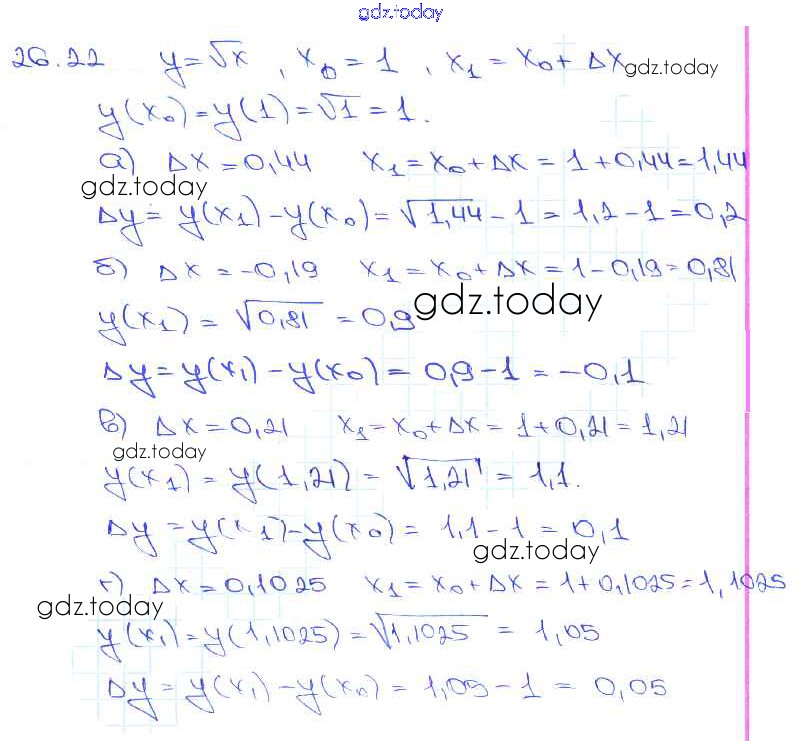 gdz.today
26.22 y=√x , x₀=1 , x₁=x₀+Δx gdz.today
y(x₀)=y(1)=√1=1.
а) Δx=0,44 x₁=x₀+Δx=1+0,44=1,44
gdz.today
Δy=y(x₁)-y(x₀)=√1,44-1=1,2-1=0,2
б) Δx=-0,19 x₁=x₀+Δx=1-0,19=0,81
gdz.today
y(x₁)=√0,81=0,9
Δy=y(x₁)-y(x₀)=0,9-1=-0,1
в) Δx=0,21 x₁=x₀+Δx=1+0,21=1,21
gdz.today
y(x₁)=y(1,21)=√1,21=1,1.
Δy=y(x₁)-y(x₀)=1,1-1=0,1
gdz.today
г) Δx=0,1025 x₁=x₀+Δx=1+0,1025=1,1025
gdz.today
y(x₁)=y(1,1025)=√1,1025=1,05
Δy=y(x₁)-y(x₀)=1,05-1=0,05